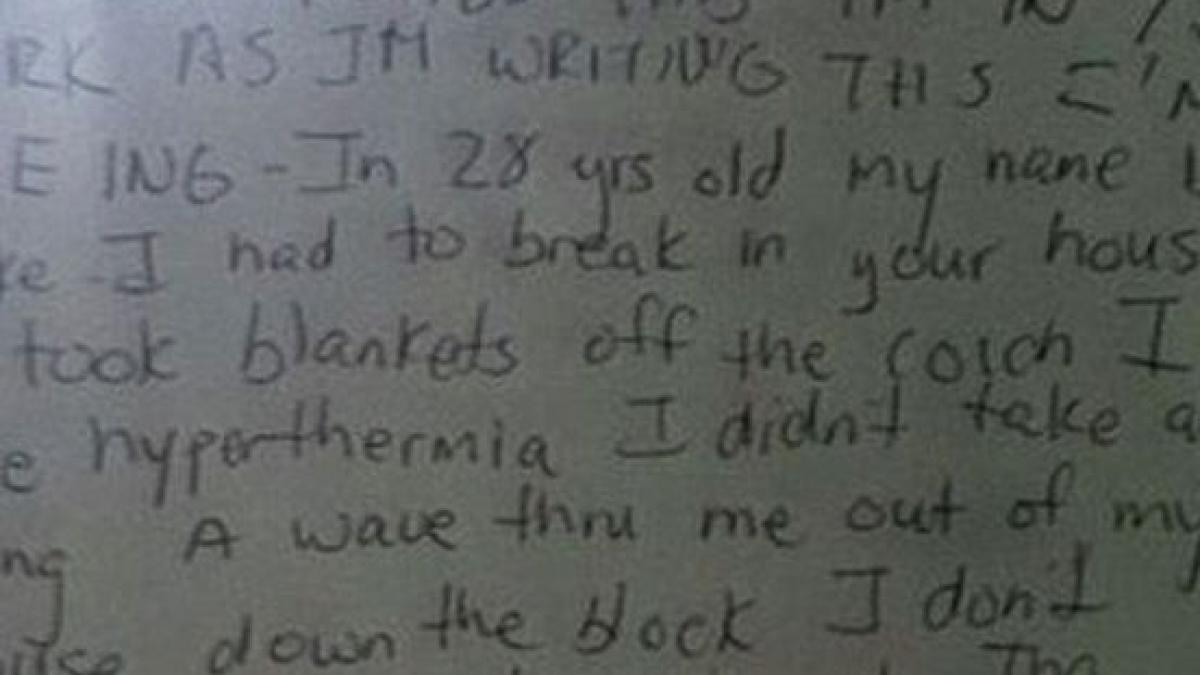 THIS IM IN
RK AS IM WRITING THIS I'M
E ING - Im 28 yrs old my name
ke - I had to break in your hous
took blankets off the coich I
e hyperthermia I didn't take a
ng A wave thru me out of my
ouse down the block I don't
The